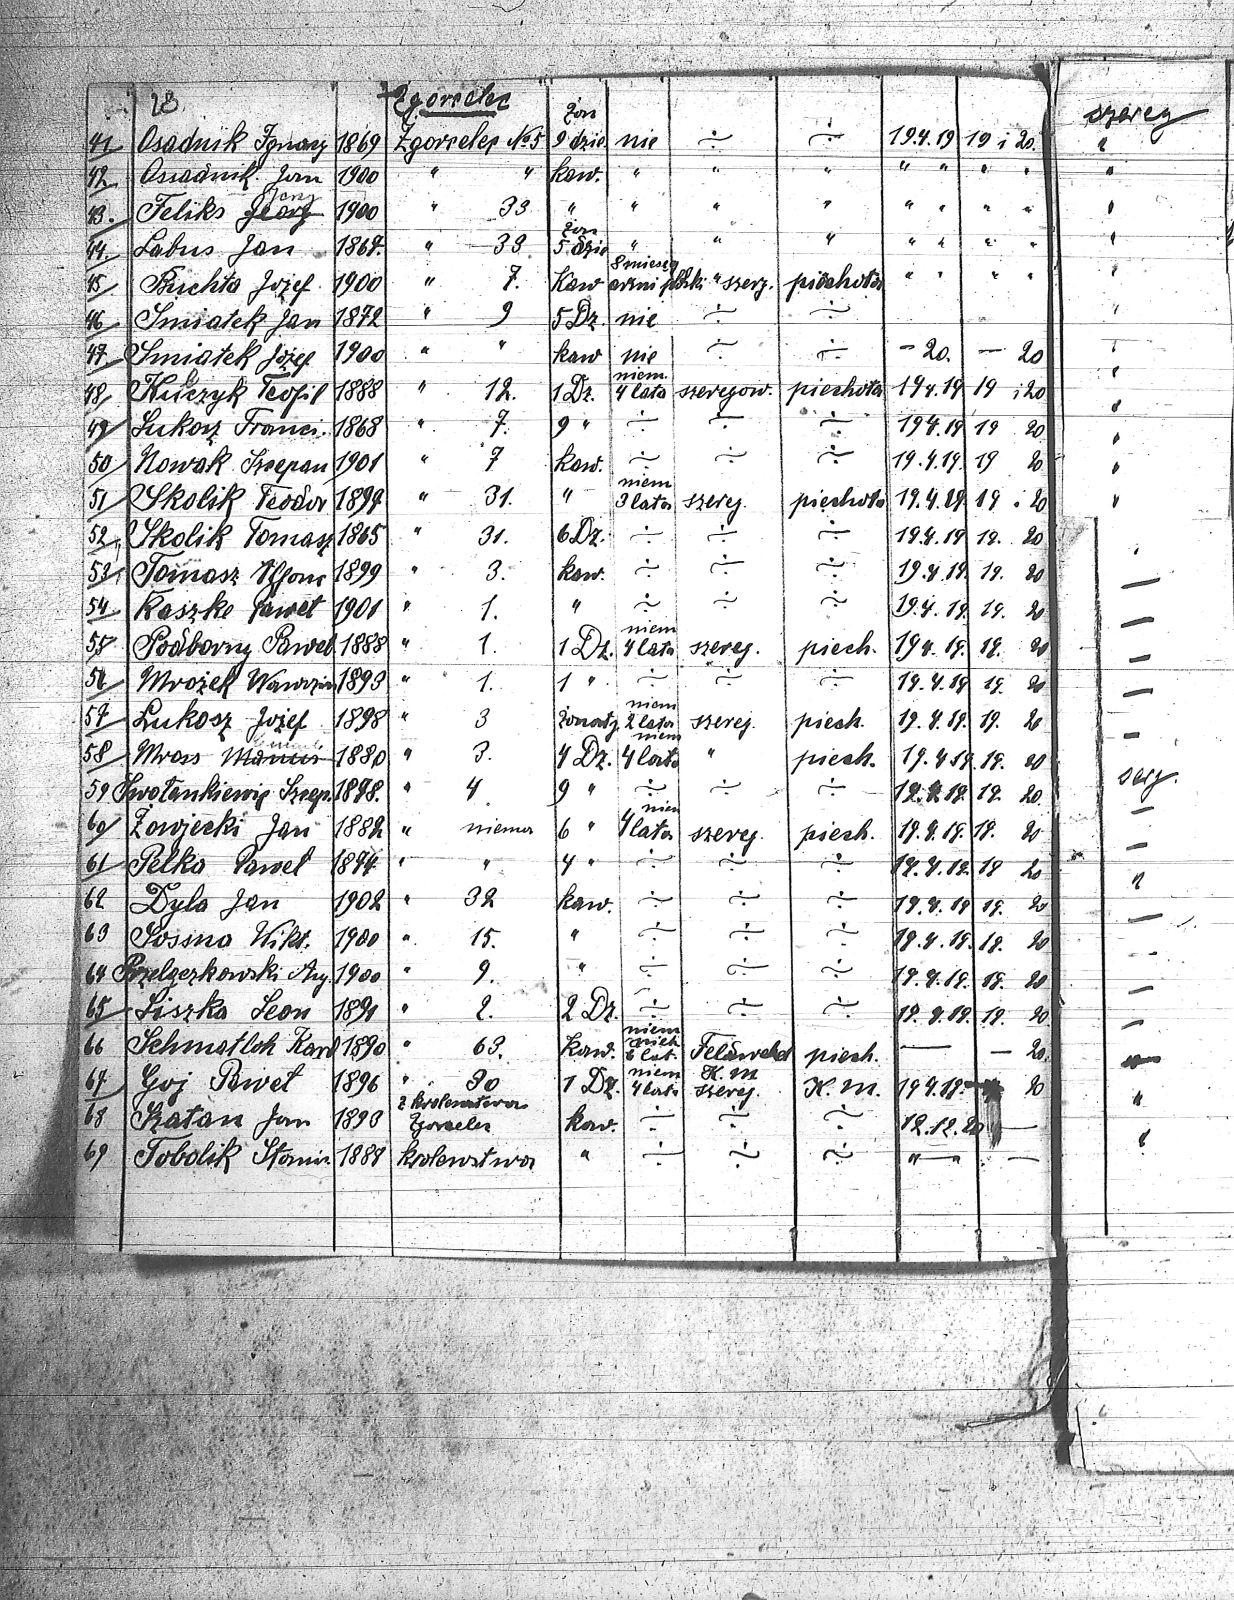 28 Zgorzelec szereg
41 Osadnik Ignacy 1869 Zgorzelec No 5 żon 9 dzie. nie ÷ ÷ 19.4.19 19 i 20. "
42 Osadnik Jan 1900 " " kaw. " " " " " " " "
43. Feliks Georg Jerzy 1900 " 33 " " " " " " " " "
44. Labus Jan 1867. " 33 żon 5 dzie " " " " " " " "
45 Buchta Józef 1900 " 7. Kaw 8 miesięcy polski " szerg. piechota " " " " "
46 Smiatek Jan 1872 " 9 5 Dz. nie ÷ ÷ "
47 Smiatek Józef 1900 " " kaw nie ÷ ÷ – 20. – 20 "
48 Teofil 1888 " 12. 1 Dz. niem. 4 lata szeregow. piechota 19 4.19 19 i 20 "
49 Lukosz Franci. 1868 " 7. 9 " ÷ ÷ ÷ 19 4.19 19 20 "
50 Nowak Szczepan 1901 " 7 kaw. ÷ ÷ ÷ 19.4.19. 19 20 "
51 Skolik Teodor " 31. " niem 3 lata szereg. piechota 19.4.19 19 i 20 "
52 Skolik Tomasz 1865 " 31. 6 Dz. ÷ ÷ ÷ 19.4.19 19. 20
53 Tomasz 1899 " 3. kaw. ÷ ÷ ÷ 19.4.19. 19. 20 —
54 Kaszke Paweł 1901 " 1. " ÷ ÷ ÷ 19.4.19. 19. 20 —
55 Podborny Paweł 1888 " 1. 1 Dz. niem 4 lata szereg. piech. 19 4. 19. 19. 20 —
56 Mrożek Wawrzin 1893 " 1. 1 " ÷ ÷ ÷ 19.4.19 19. 20 —
57 Lukosz Józef 1898 " 3 żonaty niem 2 lata szereg. piech. 19.4.19. 19. 20 —
58 Mross 1880 " 3. 4 Dz. niem 4 lata " piech. 19.4.19. 19. 20 serg.
59 Szczep. 1878. " 4 9 " ÷ ÷ ÷ 19.4.19. 19. 20. —
60 Żowjecki Jan 1882 " niema 6 " niem 4 lata szereg. piech. 19.4.19. 19. 20 —
61 Pelka Paweł 1874 " " 4 " ÷ ÷ ÷ 19.4.19. 19 20 "
62 Dyla Jan 1902 " 32 kaw. ÷ ÷ ÷ 19.4.19 19. 20 —
63 Sossna Wikt. 1900 " 15. " ÷ ÷ ÷ 19.4.19. 19. 20
64 1900 " 9. " ÷ ÷ ÷ 19.4.19. 19. 20 —
65 Liszka Leon 1891 " 2. 2 Dz. ÷ ÷ ÷ 19.4.19. 19. 20 —
66 Schmatloh Karol 1890 " 63. kaw. niem 6 lat. piech. — – 20.
67 Goj Paweł 1896 " 30 1 Dz. niem 4 lata K. M szereg. K. M. 19 4.19. 20 "
68 Szatan Jan 1893 z krolewstwa Zgorzelec kaw. ÷ ÷ ÷ 12.12.20 — "
69 Tobolik Stanis. krolewstwa " ÷ ÷ ÷ " — —